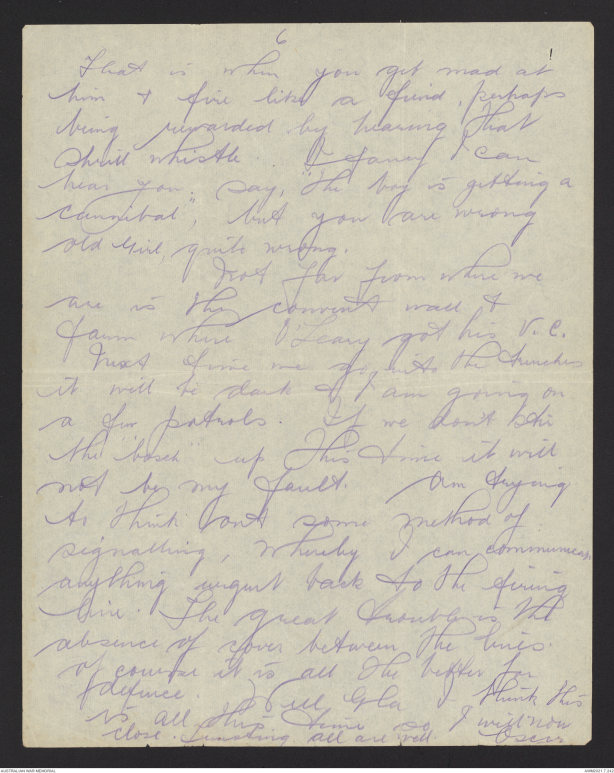 6
That is when you get mad at
him & fire like a fiend, perhaps
being rewarded by hearing that
shrill whistle. I fancy I can
hear you say, "the boy is getting a
cannibal", but you are wrong
old Girl, quite wrong.
Not far from where we
are is the convent wall &
farm where O'Leary got his V.C.
Next time we go into the trenches
it will be dark & I am going on
a few patrols. If we don't stir
the bosch up this time it will
not be my fault. Am trying
to think out some method of
signalling, whereby I can communicate
anything urgent back to the firing
line. The great trouble is the
absence of cover between the lines.
Of course it is all the better for
defence. Well Gla I think this
is all this time so I will now
close. Trusting all are well. Oscar
AUSTRALIAN WAR MEMORIAL